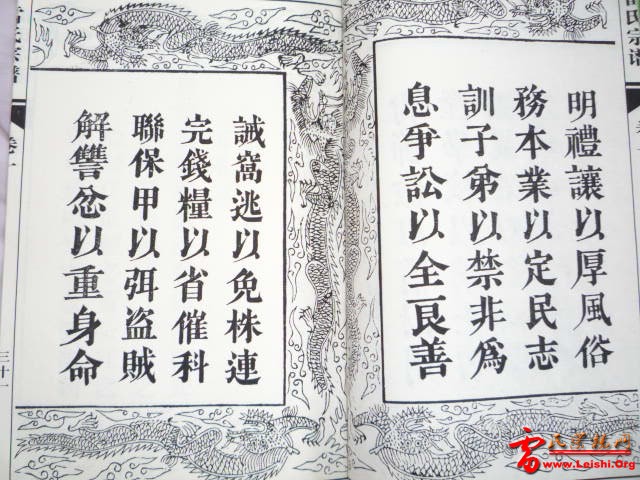 氏宗譜
明禮讓以厚風俗
務本業以定民志
訓子弟以禁非爲
息爭訟以全良善
誡窩逃以免株連
完錢糧以省催科
聯保甲以弭盜賊
解讐忿以重身命
氏宗譜
www.Leishi.Org